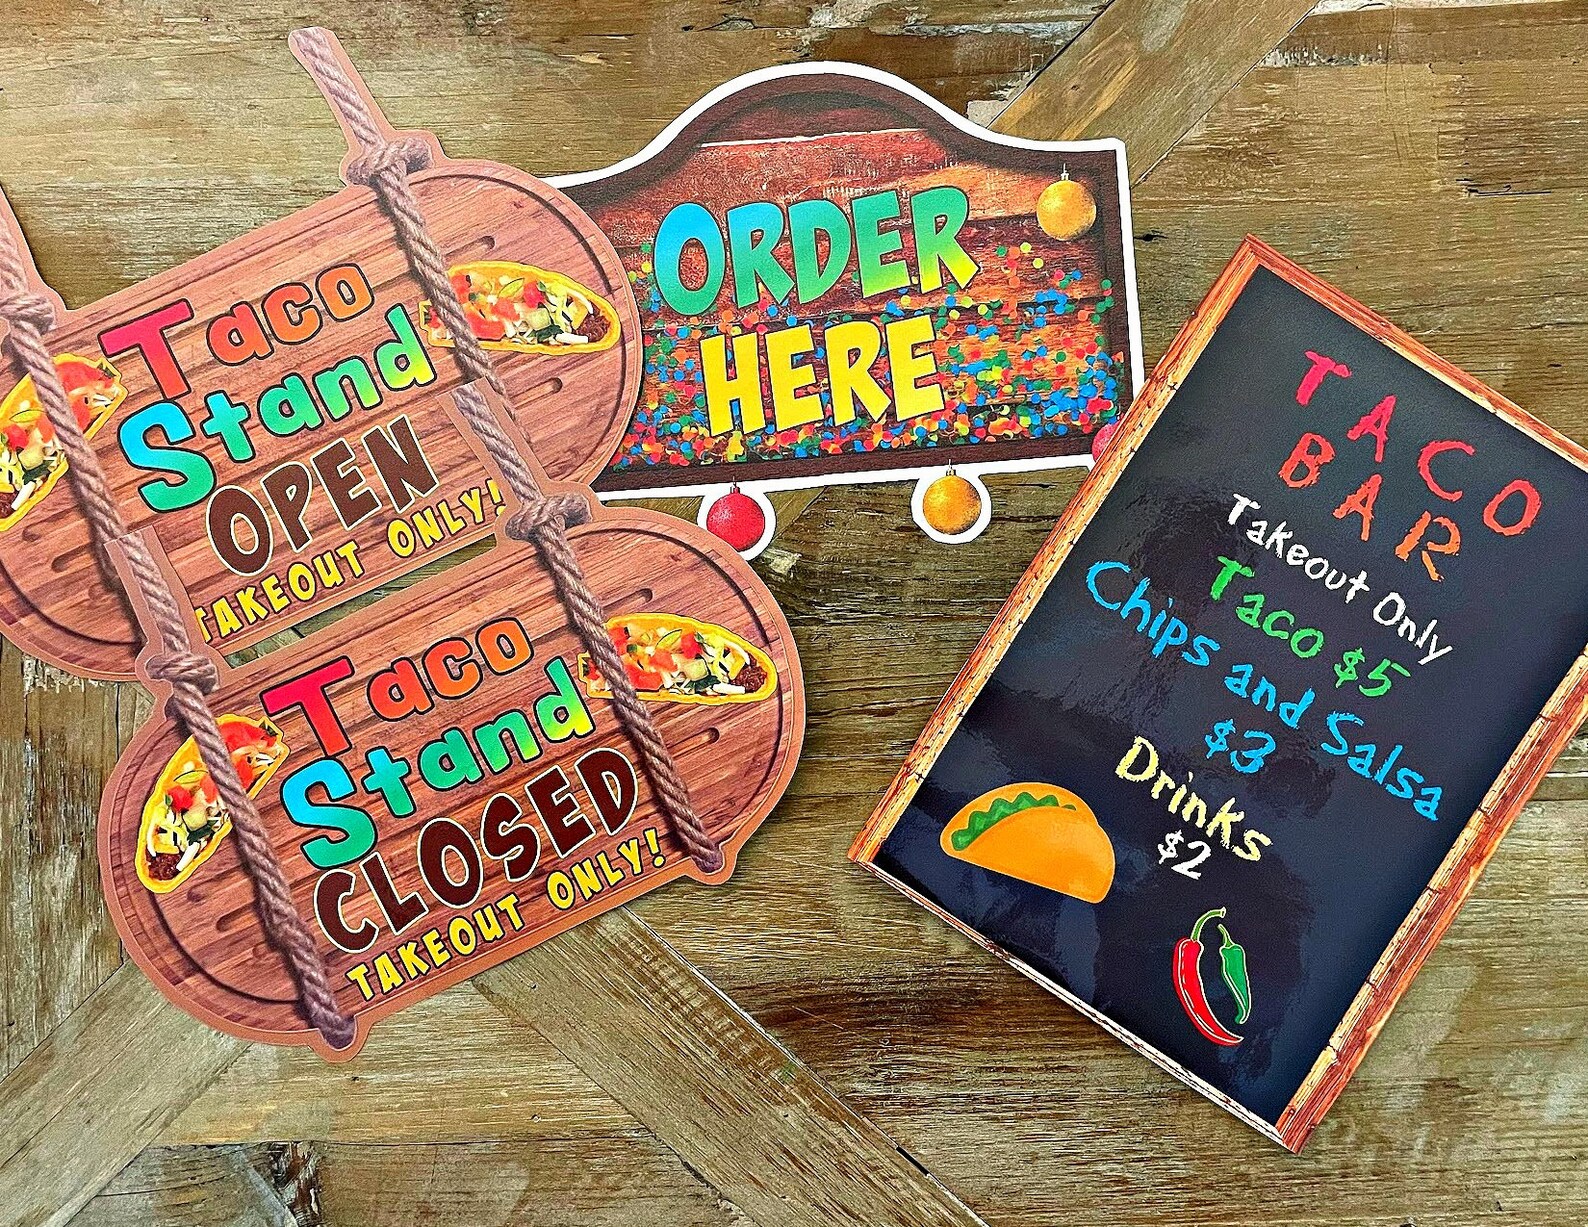 Taco
Stand
OPEN
TAKEOUT ONLY!
Taco
Stand
CLOSED
TAKEOUT ONLY!
ORDER
HERE
TACO
BAR
Takeout Only
Taco $5
Chips and Salsa
$3
Drinks
$2